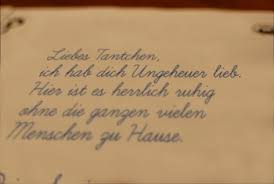 Liebes Tantchen,
ich hab dich Ungeheuer lieb.
Hier ist es herrlich ruhig
ohne die ganzen vielen
Menschen zu Hause.